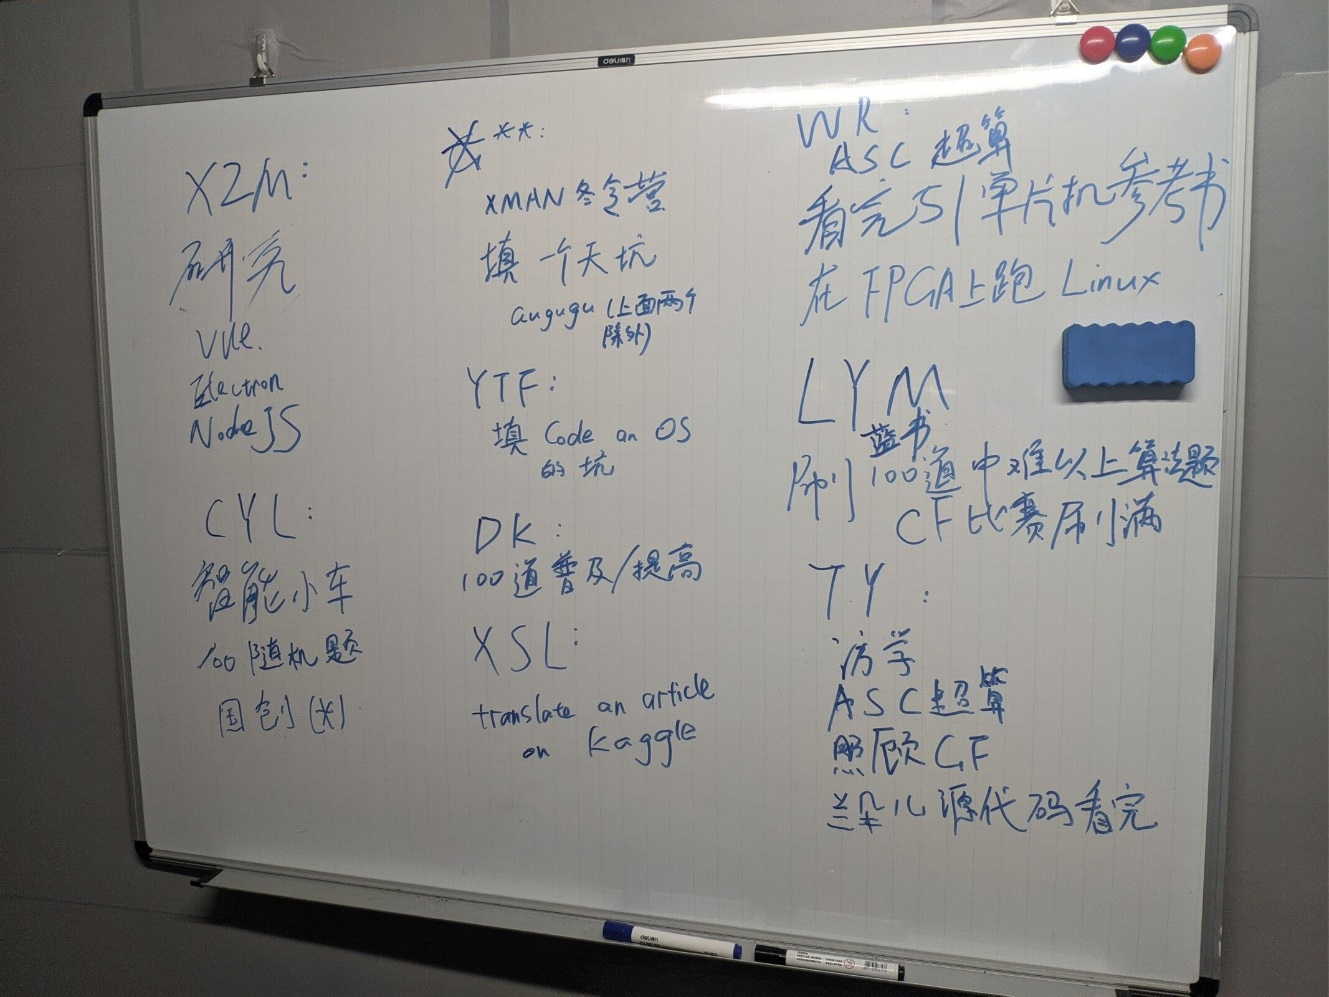 deli得力
XZM:
研究
Vue.
Electron
NodeJS
CYL:
智能小车
100随机题
国创(*)
***:
XMAN冬令营
填一个天坑
gugugu(上面两个
除外)
YTF:
填 Code an OS
的坑
DK:
100道普及/提高
XSL:
translate an article
on Kaggle
WR:
ASC 超算
看完51单片机参考书
在FPGA上跑 Linux
LYM
蓝书
刷100道中难以上算法题
CF比赛刷满
TY:
访学
ASC超算
照顾GF
兰朵儿源代码看完
deli得力